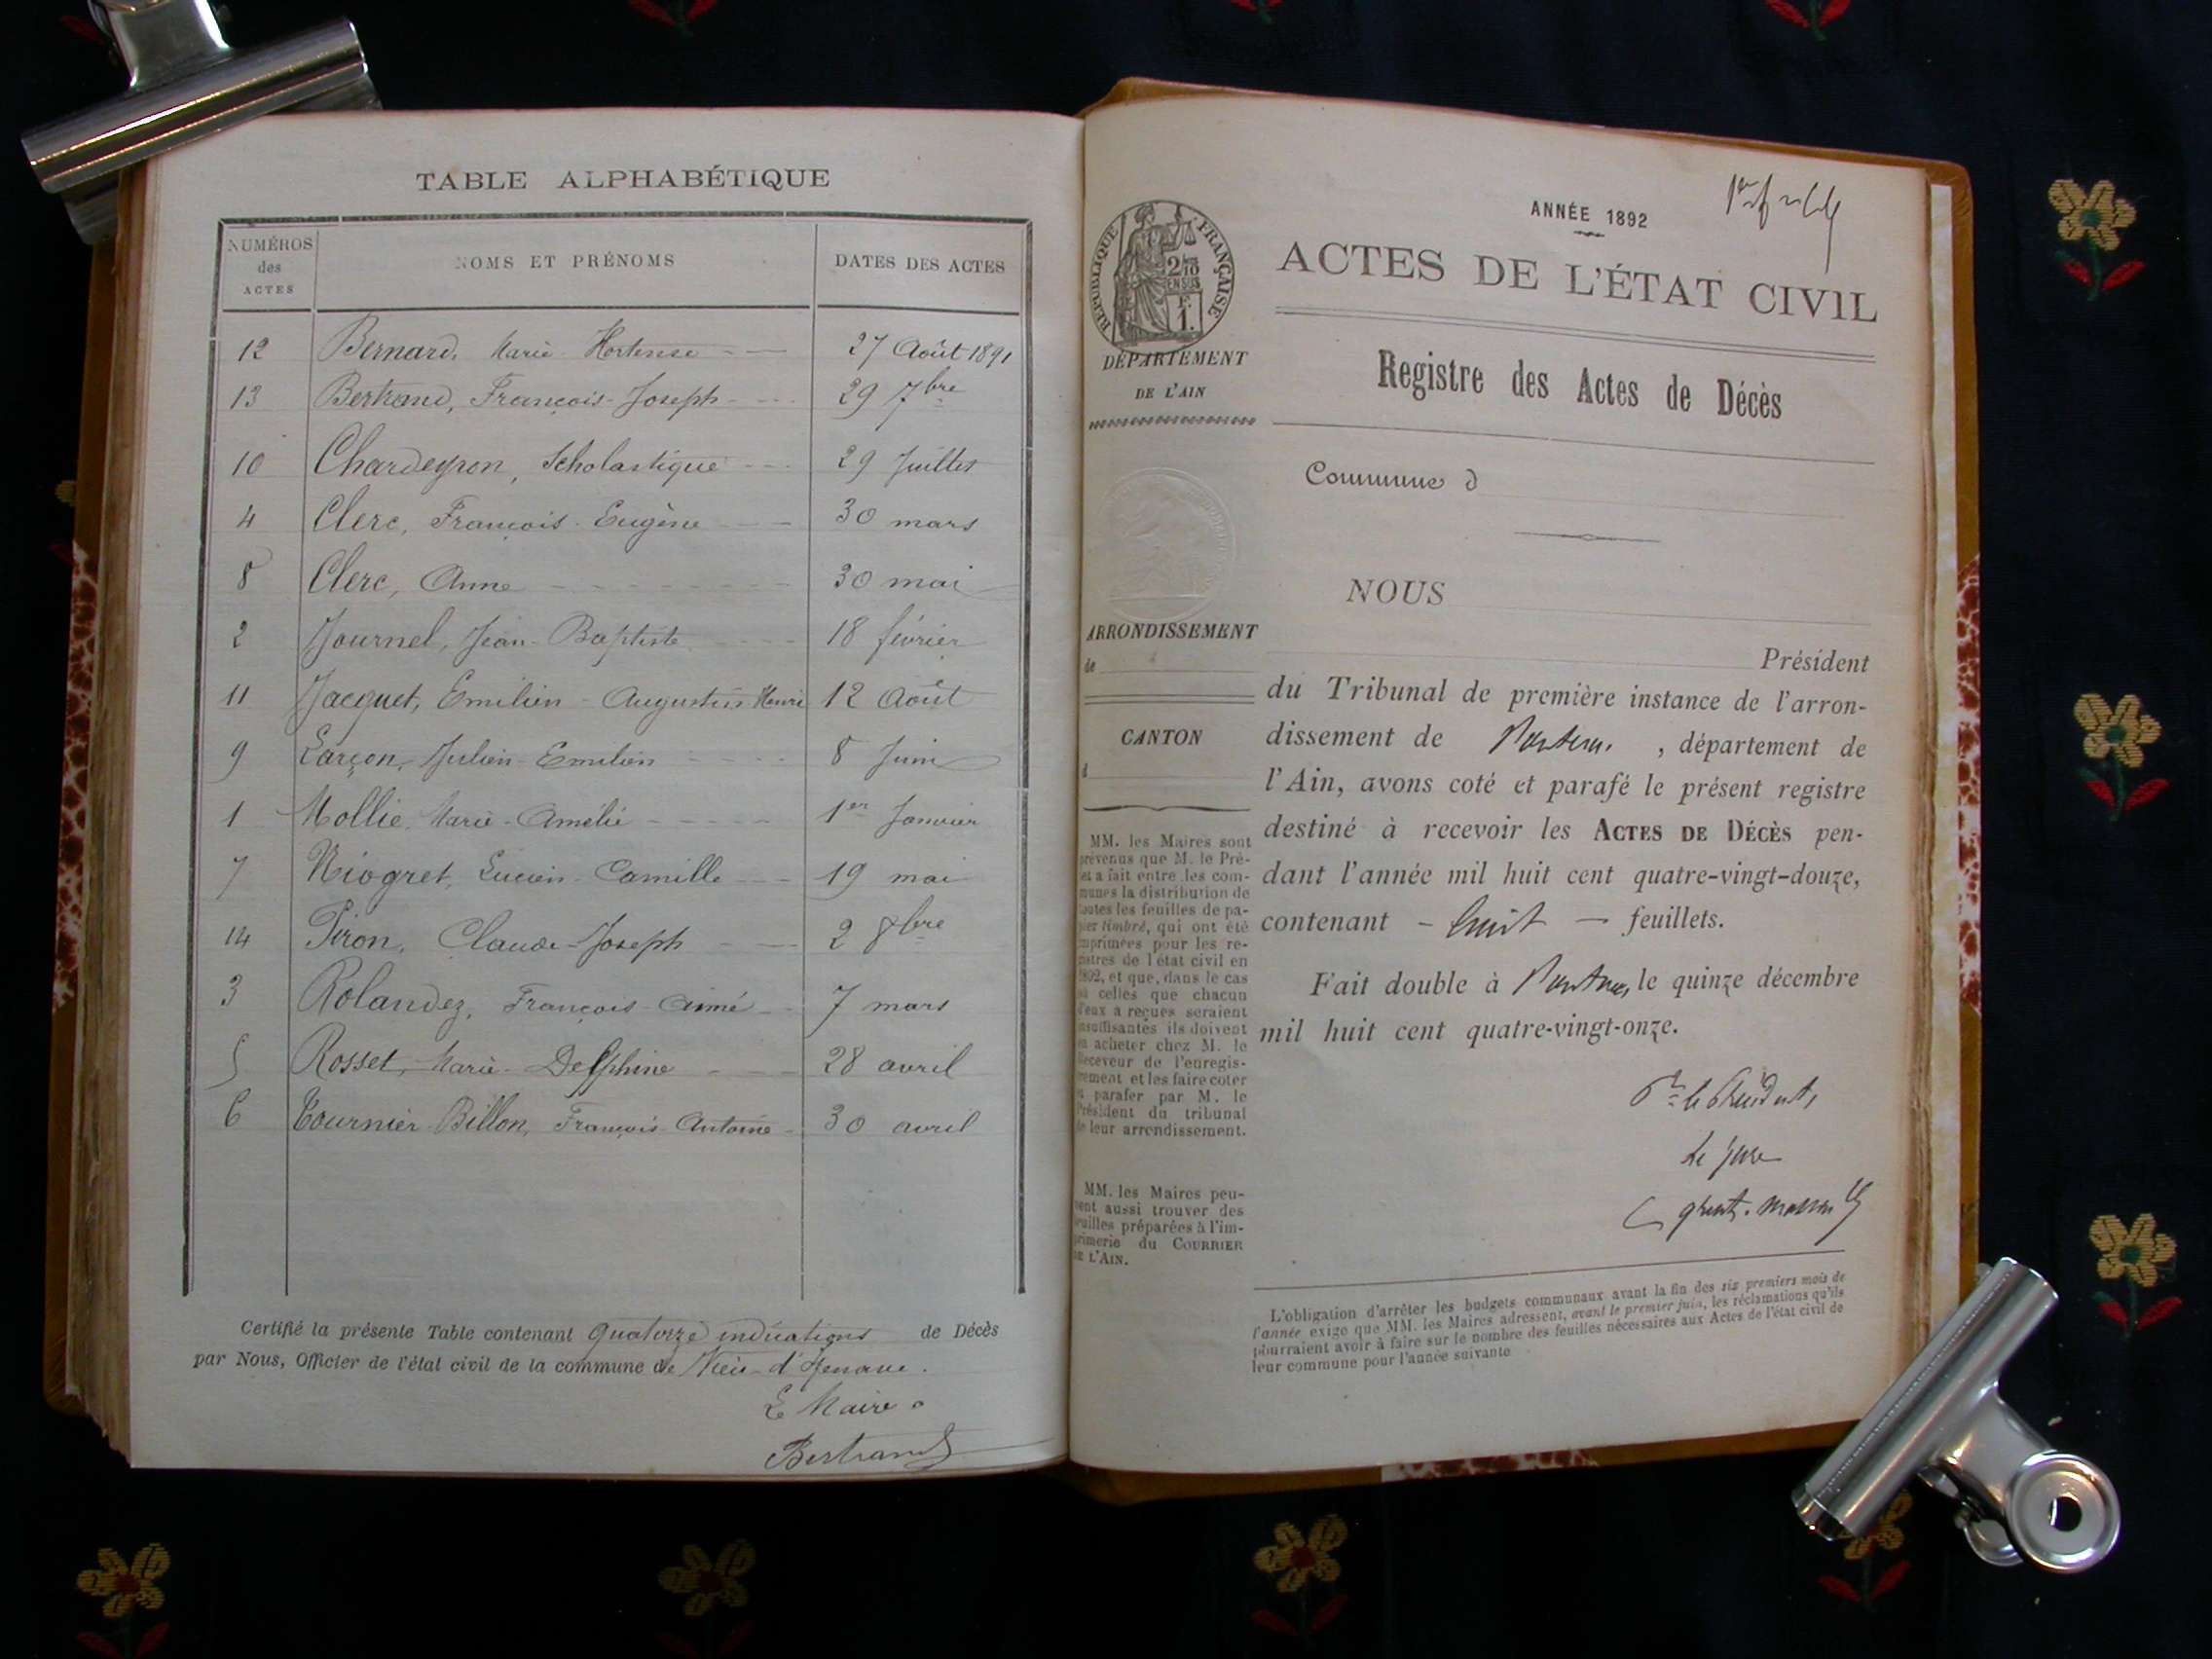 TABLE ALPHABÉTIQUE
NUMÉROS des ACTES
NOMS ET PRÉNOMS
DATES DES ACTES
12 Bernard, Marie-Hortense 27 Août 1891
13 Bertrand, François-Joseph 29 7bre
10 Chardeyron, Scholastique 29 Juillet
4 Clerc, François-Eugène 30 mars
8 Clerc, Anne 30 mai
2 Journel, Jean-Baptiste 18 février
11 Jacquet, Emilien-Augustin-Henri 12 Août
9 Larçon, Julien-Emilien 8 Juin
1 Mollie, Marie-Amélie 1er Janvier
7 Niogret, Lucien-Camille 19 mai
14 Piron, Claude-Joseph 2 8bre
3 Rolandez, François-Aimé 7 mars
5 Rosset, Marie-Delphine 28 avril
6 Tournier-Billon, François-Antoine 30 avril
Certifié la présente Table contenant Quatorze indications de Décès
par Nous, Officier de l'état civil de la commune de Vieu-d'Izenave.
Le Maire
Bertrand
RÉPUBLIQUE FRANÇAISE
2/10
EN SUS
F.
1.
DÉPARTEMENT
DE L'AIN
ARRONDISSEMENT
de
CANTON
d
MM. les Maires sont
prévenus que M. le Pré-
fet a fait entre les com-
munes la distribution de
toutes les feuilles de pa-
pier timbré, qui ont été
imprimées pour les re-
gistres de l'état civil en
1892, et que, dans le cas
où celles que chacun
d'eux a reçues seraient
insuffisantes ils doivent
en acheter chez M. le
Receveur de l'enregis-
trement et les faire coter
et parafer par M. le
Président du tribunal
de leur arrondissement.
MM. les Maires peu-
vent aussi trouver des
feuilles préparées à l'im-
primerie du COURRIER
DE L'AIN.
ANNÉE 1892
ACTES DE L'ÉTAT CIVIL
Registre des Actes de Décès
Commune d
NOUS
Président
du Tribunal de première instance de l'arron-
dissement de Nantua, département de
l'Ain, avons coté et parafé le présent registre
destiné à recevoir les ACTES DE DÉCÈS pen-
dant l'année mil huit cent quatre-vingt-douze,
contenant - huit - feuillets.
Fait double à Nantua, le quinze décembre
mil huit cent quatre-vingt-onze.
Pr le Président,
Le Juge
L'obligation d'arrêter les budgets communaux avant la fin des six premiers mois de
l'année exige que MM. les Maires adressent, avant le premier juin, les réclamations qu'ils
pourraient avoir à faire sur le nombre des feuilles nécessaires aux Actes de l'état civil de
leur commune pour l'année suivante